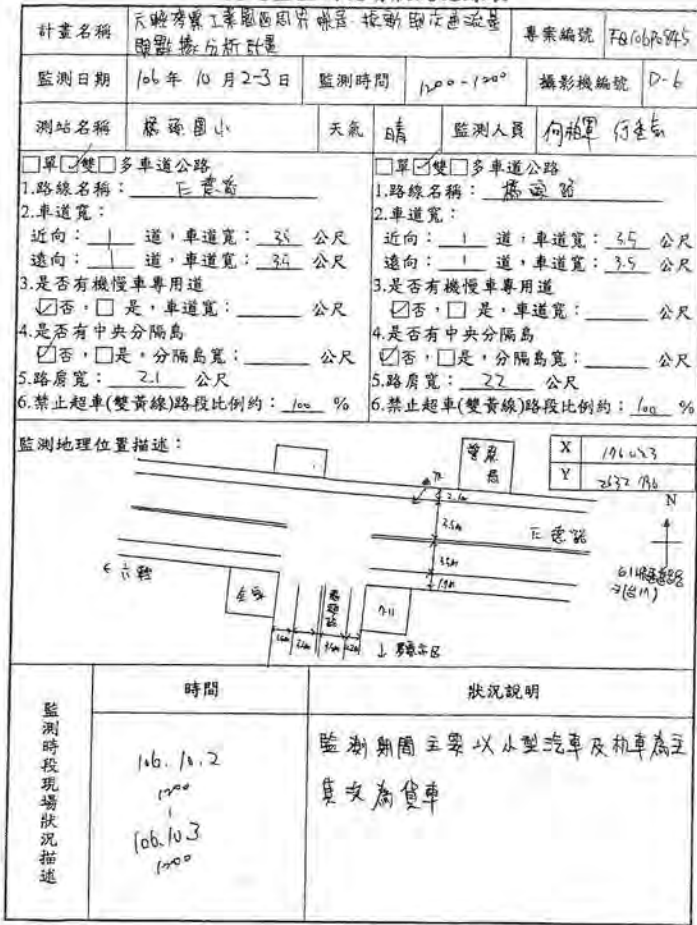 計畫名稱
六輕產業工業園區周界噪音振動與交通流量
與數據分析計畫
專案編號
監測日期 106年10月2-3日 監測時間 1200-1200 攝影機編號 D-6
測站名稱 橋頭國小 天氣 晴 監測人員
□單☑雙□多車道公路
1.路線名稱：仁德路
2.車道寬：
近向：1 道，車道寬：3.5 公尺
遠向：1 道，車道寬：3.5 公尺
3.是否有機慢車專用道
☑否，□是，車道寬： 公尺
4.是否有中央分隔島
☑否，□是，分隔島寬： 公尺
5.路肩寬：2.1 公尺
6.禁止超車(雙黃線)路段比例約：100 %
□單☑雙□多車道公路
1.路線名稱：橋頭路
2.車道寬：
近向：1 道，車道寬：3.5 公尺
遠向：1 道，車道寬：3.5 公尺
3.是否有機慢車專用道
☑否，□是，車道寬： 公尺
4.是否有中央分隔島
☑否，□是，分隔島寬： 公尺
5.路肩寬：22 公尺
6.禁止超車(雙黃線)路段比例約：100 %
監測地理位置描述：
警察
局
X
Y
N
2.1m
3.5m
仁德路
3.5m
←六輕
全家
7-11
監測時段現場狀況描述
時間
狀況說明
106.10.2
1200
106.10.3
1200
監測期間主要以小型汽車及机車為主
其次為貨車